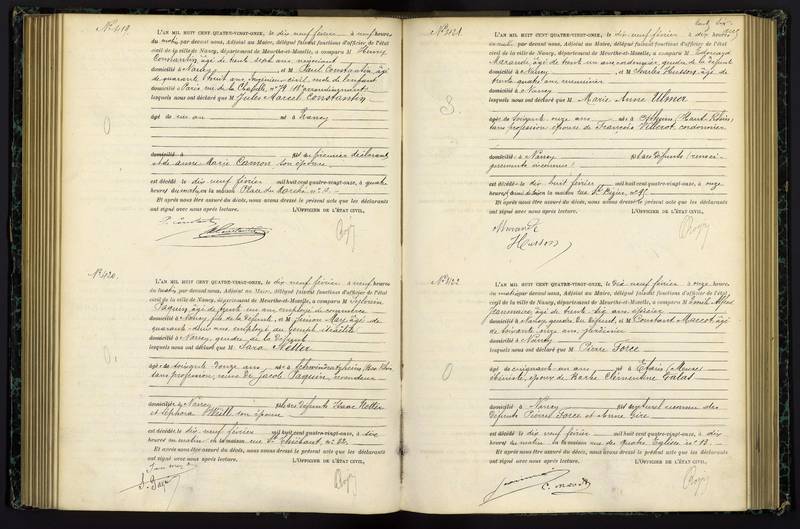 N° 419.
L'AN MIL HUIT CENT QUATRE-VINGT-ONZE, le dix neuf février à neuf heures
du matin par devant nous, Adjoint au Maire, délégué faisant fonctions d'officier de l'état
civil de la ville de Nancy, département de Meurthe-et-Moselle, a comparu M Henry
Constantin, âgé de trente sept ans, négociant
domicilié à Nancy, et M Paul Constantin, âgé
de quarante ans, ingénieur civil, oncle de l'enfant
domicilié à Paris rue de la Chapelle, n° 79
lesquels nous ont déclaré que M Jules Marcel Constantin
âgé de un an né à Nancy
domicilié à fils du premier déclarant
et de Anne Marie Camon son épouse
est décédé le dix neuf février mil huit cent quatre-vingt-onze, à quatre
heures du matin en la maison Place du Marché n°
Et après nous être assuré du décès, nous avons dressé le présent acte que les déclarants
ont signé avec nous après lecture. L'OFFICIER DE L'ÉTAT CIVIL,
N° 420.
L'AN MIL HUIT CENT QUATRE-VINGT-ONZE, le dix neuf février à neuf heures
du matin par devant nous, Adjoint au Maire, délégué faisant fonctions d'officier de l'état
civil de la ville de Nancy, département de Meurthe-et-Moselle, a comparu M Sylvain
Paquin, âgé de trente un ans employé de commerce
domicilié à Nancy, fils de la défunte, et M Simon May, âgé de
quarante deux ans employé au temple israélite
domicilié à Nancy, gendre de la défunte
lesquels nous ont déclaré que M Sara Netter
âgée de soixante douze ans née à Bas Rhin
sans profession, veuve de Jacob Paquin, revendeur
domiciliée à Nancy fille des défunts Isaac Netter
et Sephora Weill son épouse
est décédée le dix neuf février mil huit cent quatre-vingt-onze, à dix
heures du matin en la maison rue St Thiébaut, n° 22
Et après nous être assuré du décès, nous avons dressé le présent acte que les déclarants
ont signé avec nous après lecture. L'OFFICIER DE L'ÉTAT CIVIL,
N° 421.
L'AN MIL HUIT CENT QUATRE-VINGT-ONZE, le dix neuf février à dix heures
du matin par devant nous, Adjoint au Maire, délégué faisant fonctions d'officier de l'état
civil de la ville de Nancy, département de Meurthe-et-Moselle, a comparu M Edouard
Marande, âgé de trente un ans cordonnier, gendre de la défunte
domicilié à Nancy, et M Charles Husson, âgé de
trente quatre ans menuisier
domicilié à Nancy
lesquels nous ont déclaré que M Marie Anne Ulmer
âgée de soixante onze ans née à (Haut-Rhin)
sans profession épouse de François Villerot, cordonnier
domiciliée à Nancy fille des défunts
est décédée le dix huit février mil huit cent quatre-vingt-onze, à onze
heures en la maison rue St Dizier, n°
Et après nous être assuré du décès, nous avons dressé le présent acte que les déclarants
ont signé avec nous après lecture. L'OFFICIER DE L'ÉTAT CIVIL,
Marande
Husson
N° 422
L'AN MIL HUIT CENT QUATRE-VINGT-ONZE, le dix neuf février à onze heures
du matin par devant nous, Adjoint au Maire, délégué faisant fonctions d'officier de l'état
civil de la ville de Nancy, département de Meurthe-et-Moselle, a comparu M Emile Alfred
Jeanmaire, âgé de trente six ans
domicilié à Nancy, gendre du défunt, et M Constant Marcot, âgé
de soixante onze ans
domicilié à Nancy
lesquels nous ont déclaré que M Pierre Force
âgé de cinquante un ans né à Etain (Meuse)
époux de Barbe Clémentine
domicilié à Nancy
défunts Pierre Force et Anne
est décédé le dix neuf février mil huit cent quatre-vingt-onze, à dix
heures du matin en la maison rue des quatre Eglises n° 13
Et après nous être assuré du décès, nous avons dressé le présent acte que les déclarants
ont signé avec nous après lecture. L'OFFICIER DE L'ÉTAT CIVIL,